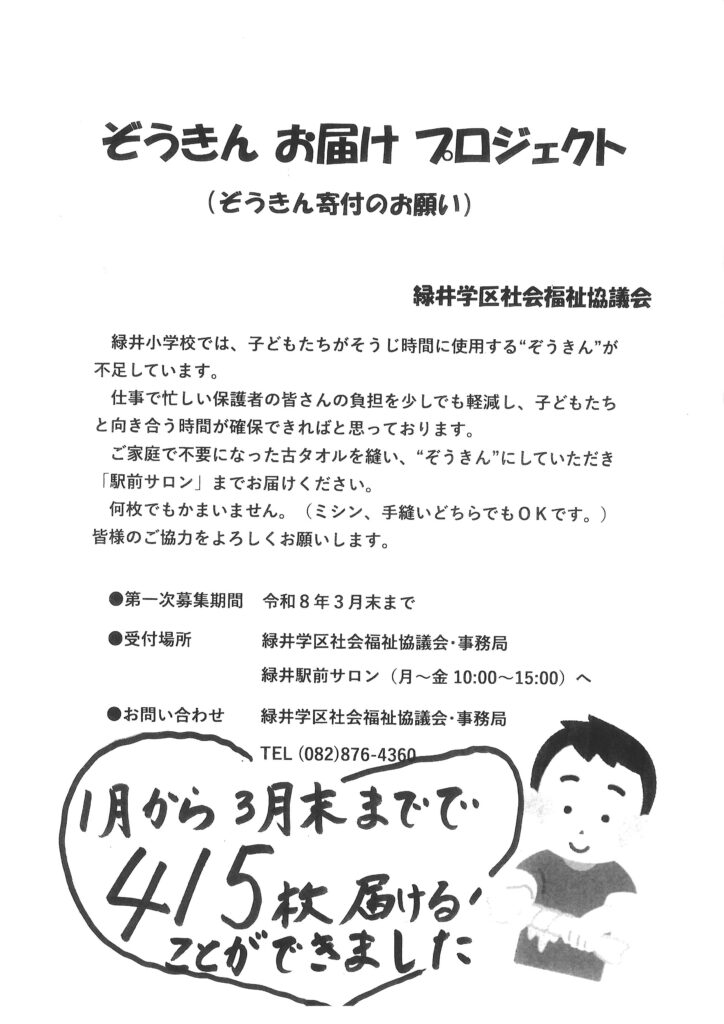 ぞうきん お届け プロジェクト
（ぞうきん寄付のお願い）
緑井学区社会福祉協議会
緑井小学校では、子どもたちがそうじ時間に使用する“ぞうきん”が
不足しています。
仕事で忙しい保護者の皆さんの負担を少しでも軽減し、子どもたち
と向き合う時間が確保できればと思っております。
ご家庭で不要になった古タオルを縫い、“ぞうきん”にしていただき
「駅前サロン」までお届けください。
何枚でもかまいません。（ミシン、手縫いどちらでもＯＫです。）
皆様のご協力をよろしくお願いします。
●第一次募集期間　令和８年３月末まで
●受付場所　緑井学区社会福祉協議会・事務局
緑井駅前サロン（月～金 10:00～15:00）へ
●お問い合わせ　緑井学区社会福祉協議会・事務局
TEL (082)876-4360
1月から3月末までで
415枚 届ける
ことができました